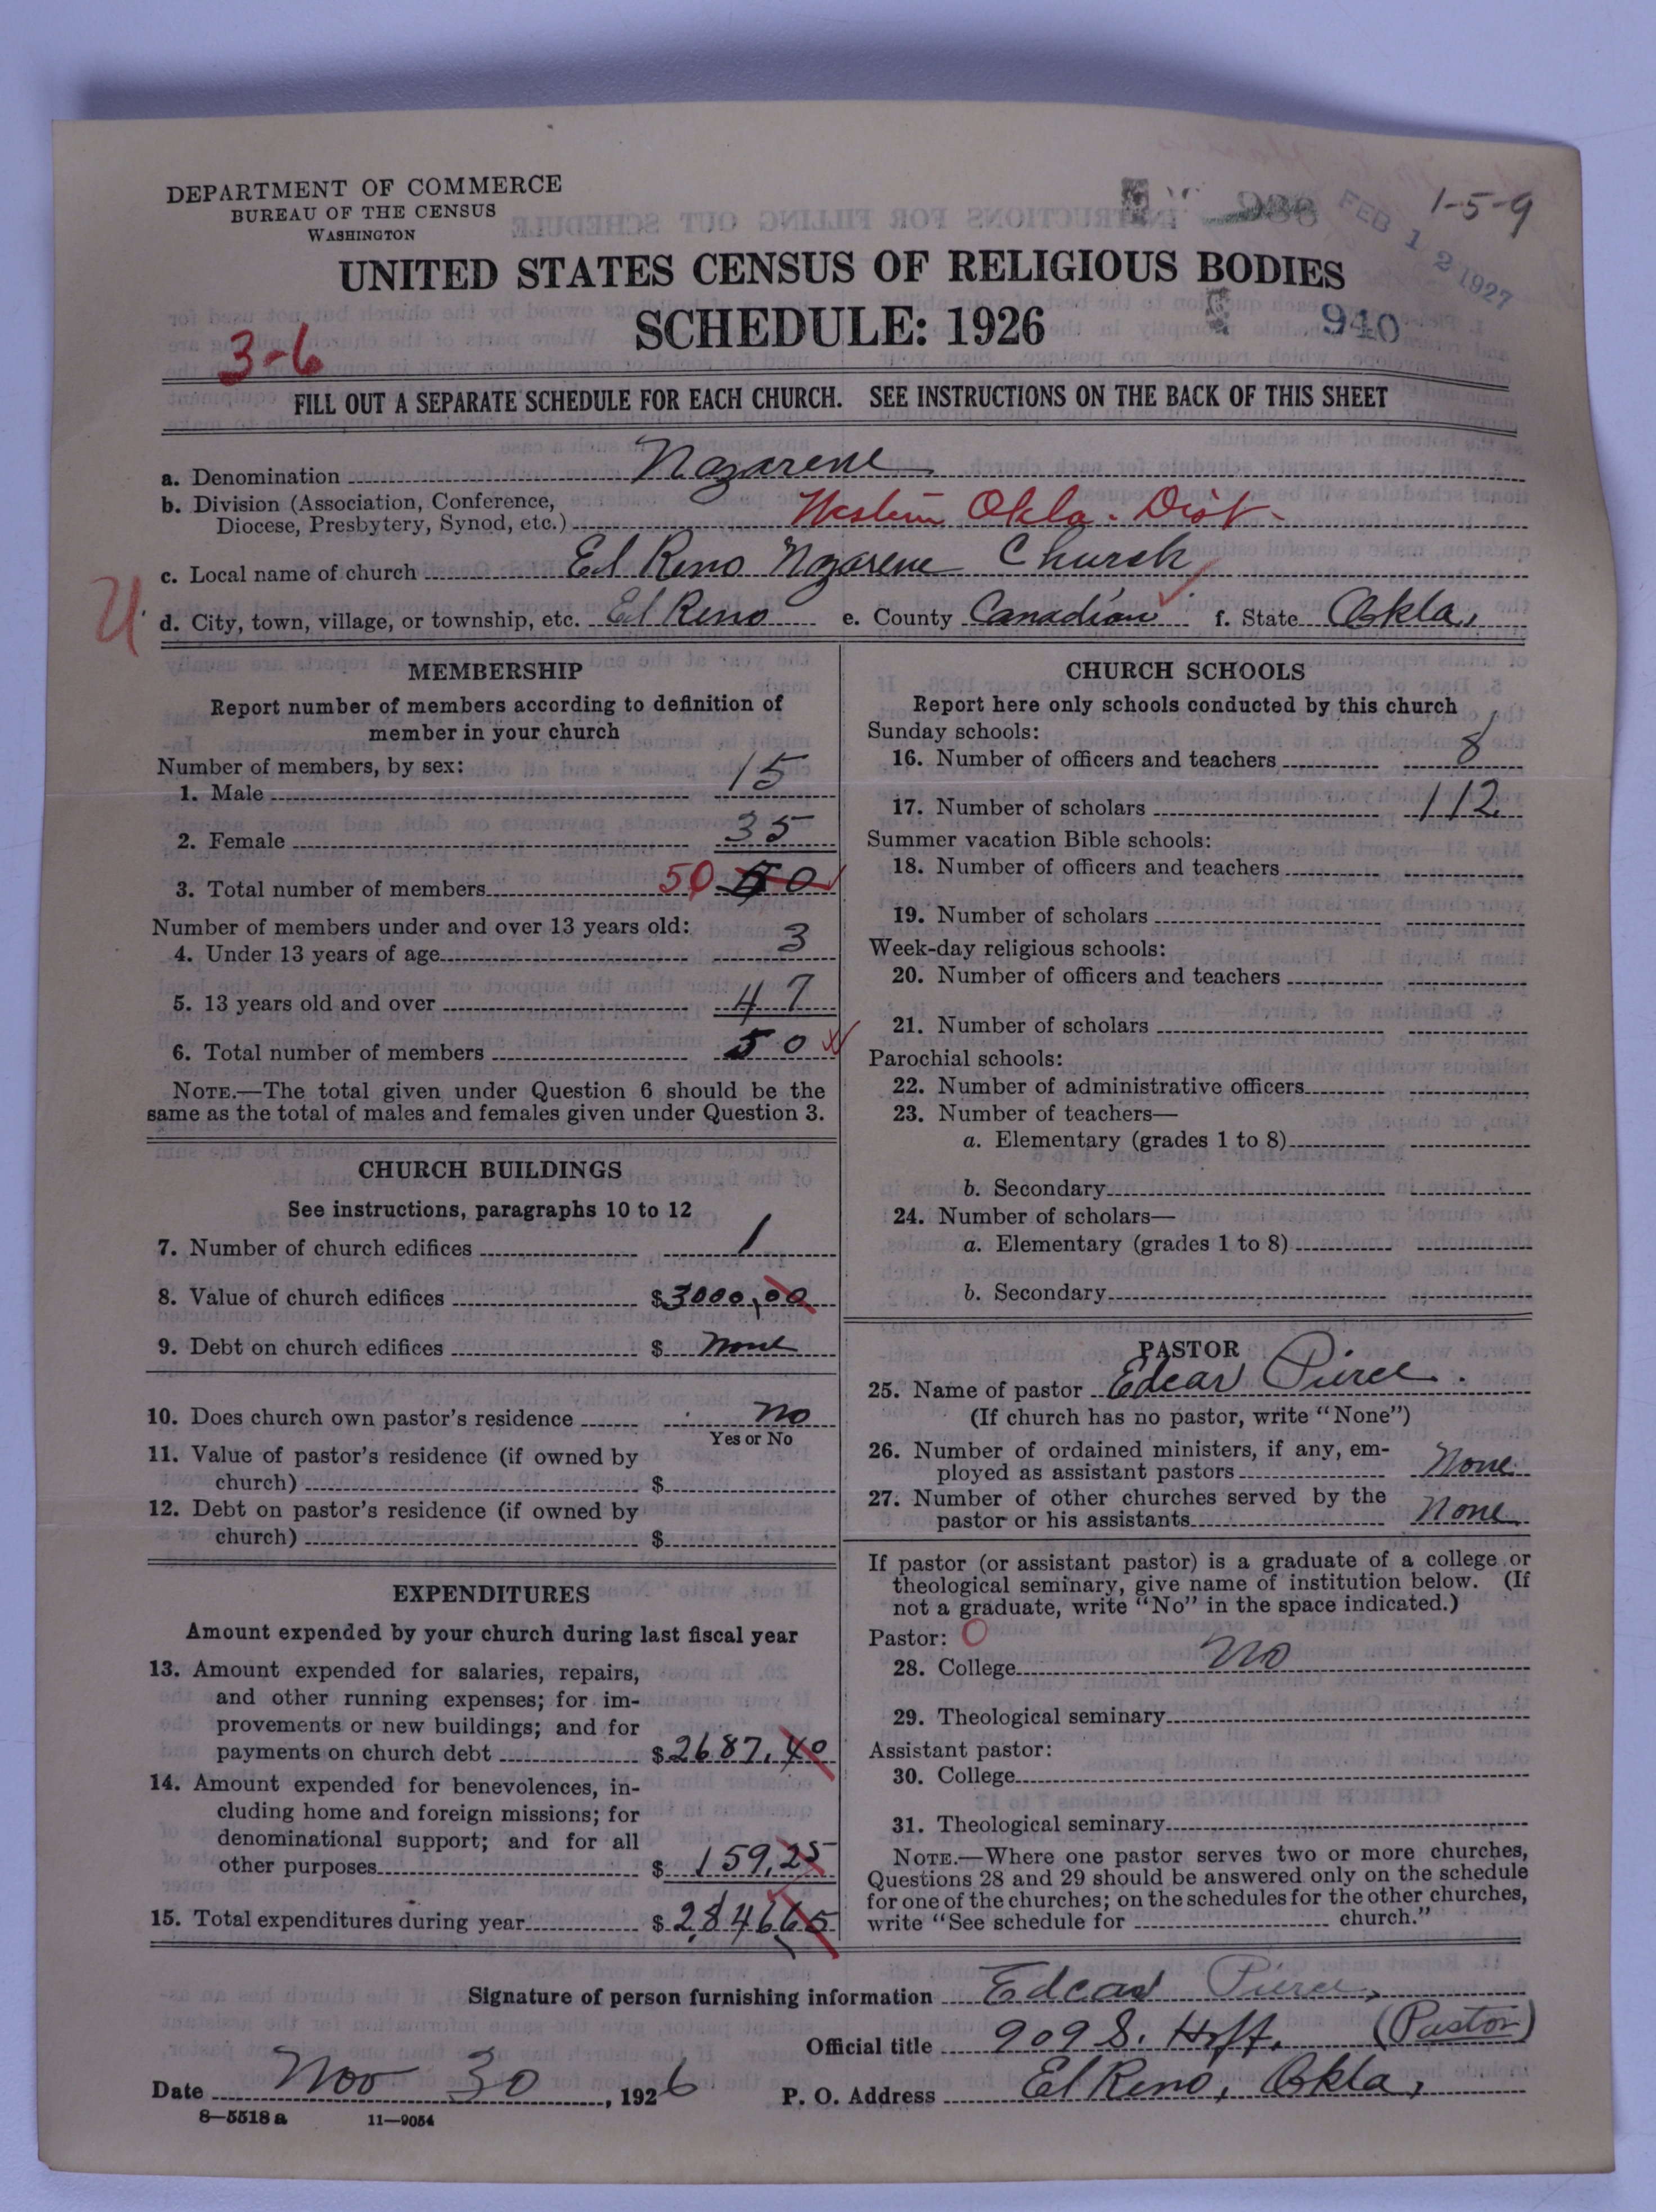 DEPARTMENT OF COMMERCE
BUREAU OF THE CENSUS
WASHINGTON
1-5-9
FEB 12 1927
UNITED STATES CENSUS OF RELIGIOUS BODIES
SCHEDULE: 1926
940
3-6
FILL OUT A SEPARATE SCHEDULE FOR EACH CHURCH. SEE INSTRUCTIONS ON THE BACK OF THIS SHEET
a. Denomination Nazarene
b. Division (Association, Conference,
Diocese, Presbytery, Synod, etc.) Western Okla. Dist.
c. Local name of church El Reno Nazarene Church
U
d. City, town, village, or township, etc. El Reno e. County Canadian f. State Okla.
MEMBERSHIP
Report number of members according to definition of
member in your church
Number of members, by sex:
1. Male 15
2. Female 35
3. Total number of members 50 50
Number of members under and over 13 years old:
4. Under 13 years of age 3
5. 13 years old and over 47
6. Total number of members 50
NOTE.—The total given under Question 6 should be the
same as the total of males and females given under Question 3.
CHURCH BUILDINGS
See instructions, paragraphs 10 to 12
7. Number of church edifices 1
8. Value of church edifices $3000,00
9. Debt on church edifices $ None
10. Does church own pastor's residence No
Yes or No
11. Value of pastor's residence (if owned by
church) $
12. Debt on pastor's residence (if owned by
church) $
EXPENDITURES
Amount expended by your church during last fiscal year
13. Amount expended for salaries, repairs,
and other running expenses; for im-
provements or new buildings; and for
payments on church debt $2687.40
14. Amount expended for benevolences, in-
cluding home and foreign missions; for
denominational support; and for all
other purposes $159,25
15. Total expenditures during year $284665
CHURCH SCHOOLS
Report here only schools conducted by this church
Sunday schools:
16. Number of officers and teachers 8
17. Number of scholars 112
Summer vacation Bible schools:
18. Number of officers and teachers
19. Number of scholars
Week-day religious schools:
20. Number of officers and teachers
21. Number of scholars
Parochial schools:
22. Number of administrative officers
23. Number of teachers—
a. Elementary (grades 1 to 8)
b. Secondary
24. Number of scholars—
a. Elementary (grades 1 to 8)
b. Secondary
PASTOR
25. Name of pastor Edcar Pierce.
(If church has no pastor, write "None")
26. Number of ordained ministers, if any, em-
ployed as assistant pastors None
27. Number of other churches served by the
pastor or his assistants None
If pastor (or assistant pastor) is a graduate of a college or
theological seminary, give name of institution below. (If
not a graduate, write "No" in the space indicated.)
Pastor: O
28. College No
29. Theological seminary
Assistant pastor:
30. College
31. Theological seminary
NOTE.—Where one pastor serves two or more churches,
Questions 28 and 29 should be answered only on the schedule
for one of the churches; on the schedules for the other churches,
write "See schedule for church."
Signature of person furnishing information Edcar Pierce,
Official title 909 S. Hoff. (Pastor)
Date Nov 30, 1926 P. O. Address El Reno, Okla,
8—5518 a 11—9054